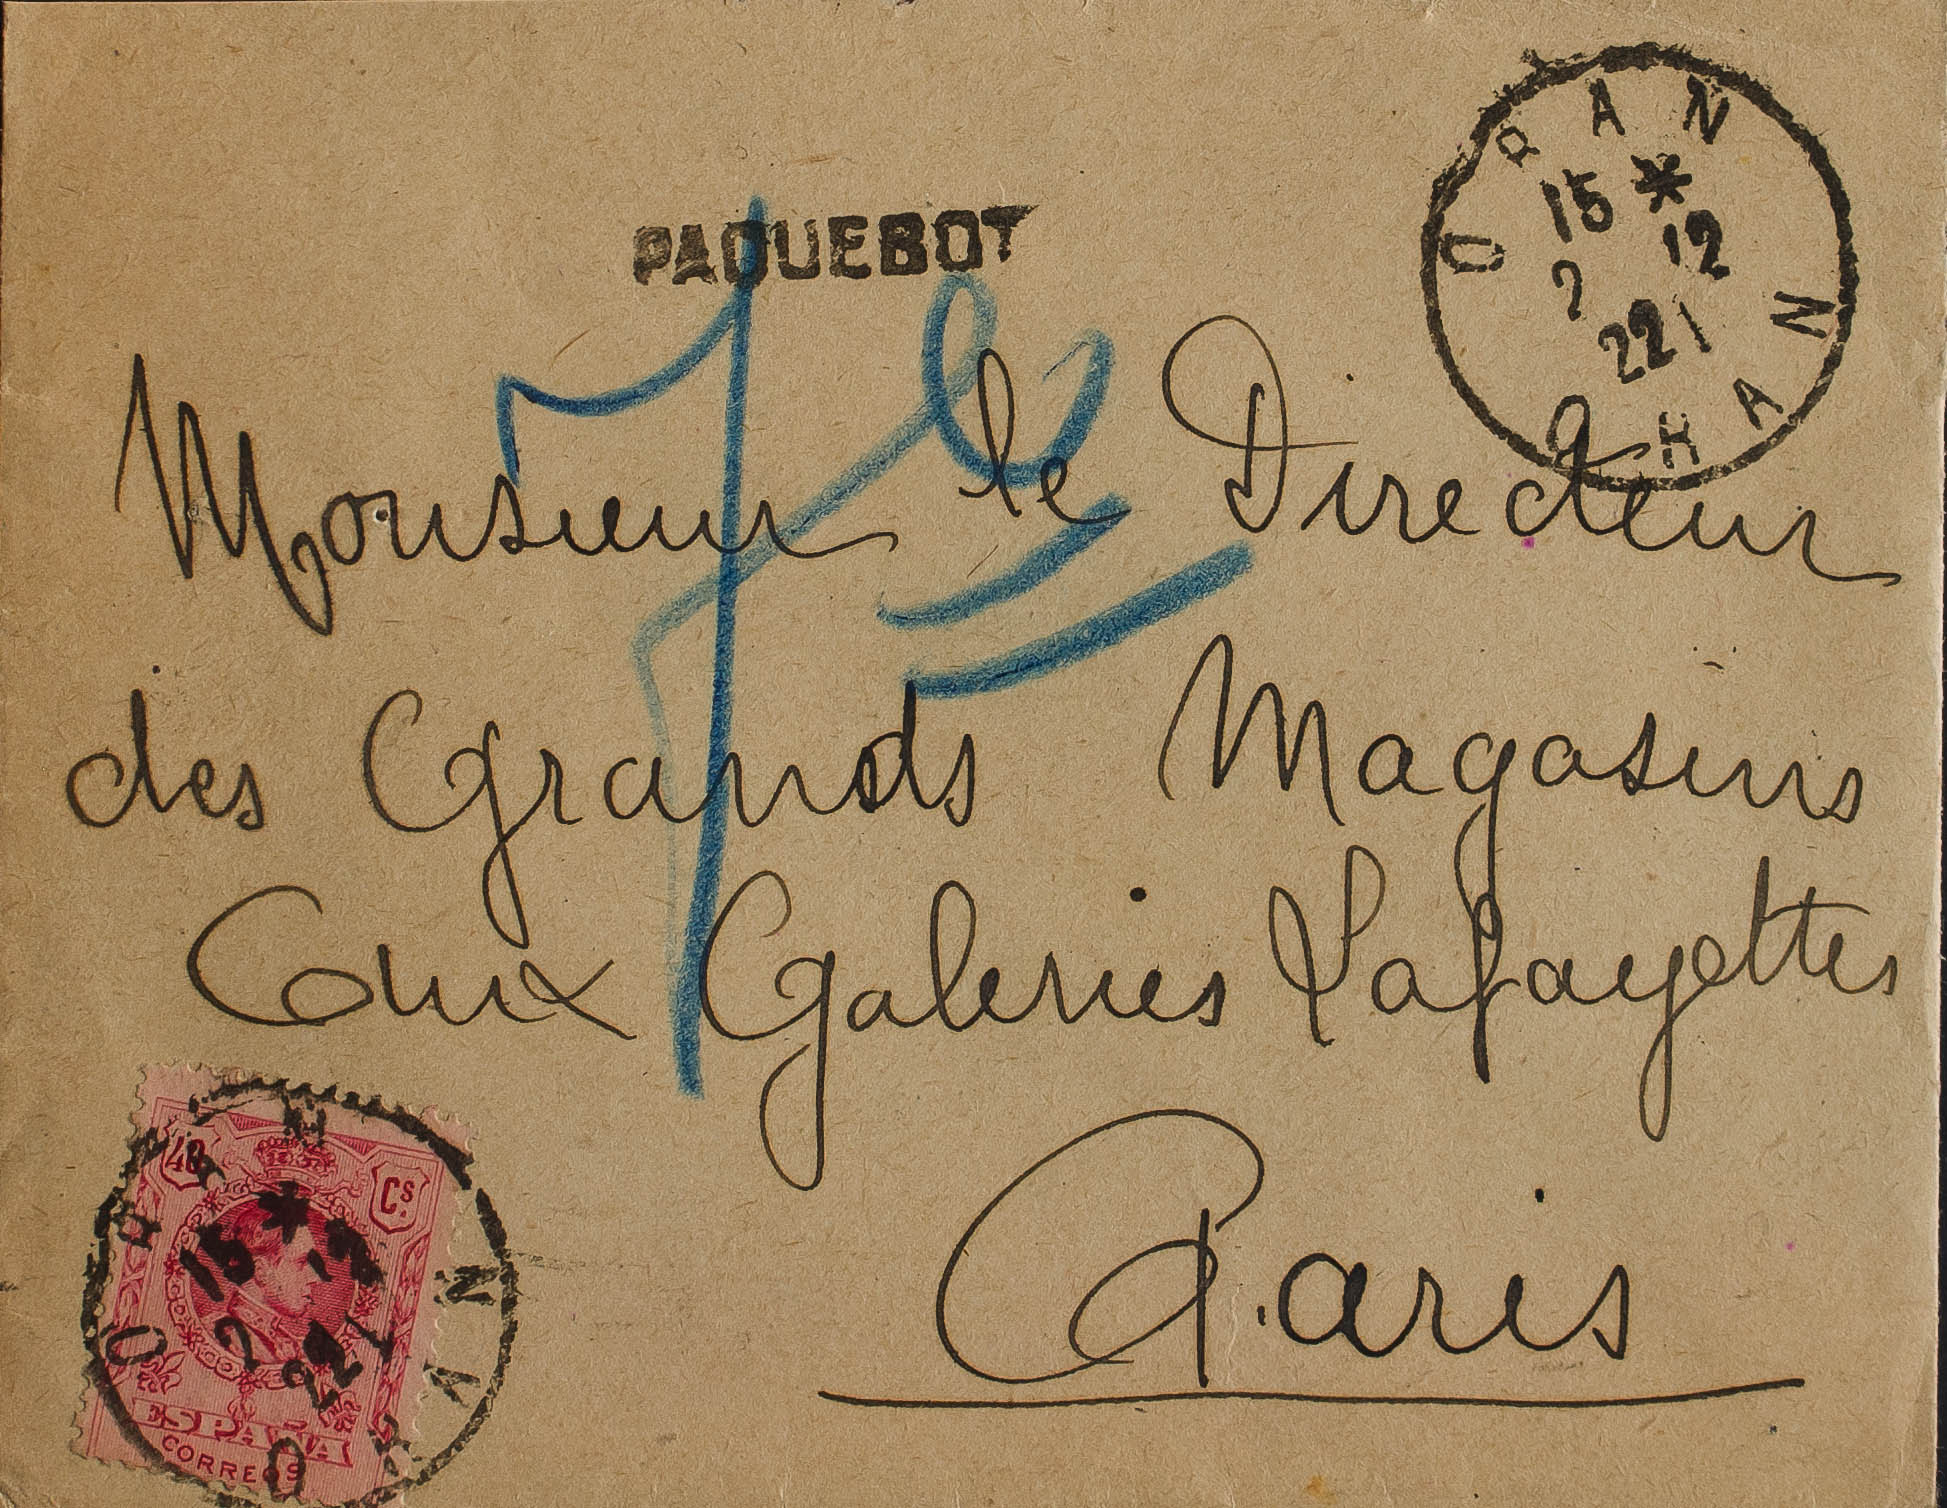 ORAN
15 * 12
2
22 1
ORAN
PAQUEBOT
Monsieur le Directeur
des Grands Magasins
aux Galeries Lafayettes
Paris
40 Cs.
ORAN
15 * 12
2
22 1
ORAN
ESPAÑA
CORREOS